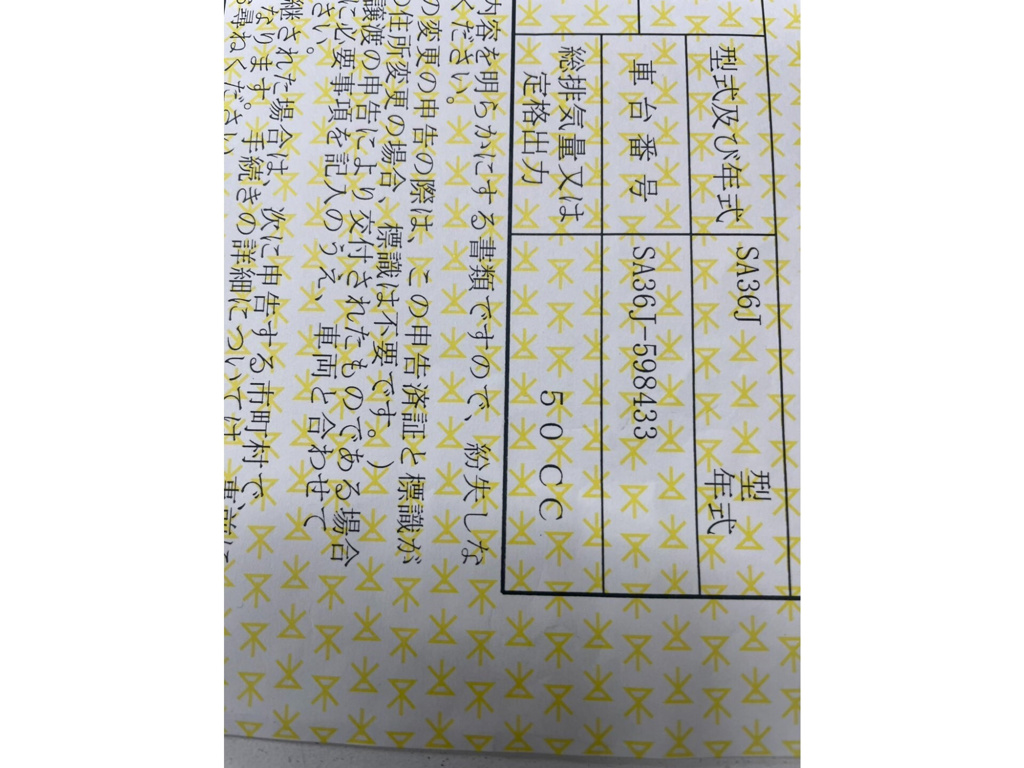 型式及び年式 SA36J 型 年式
車台番号 SA36J-598433
総排気量又は定格出力 50CC
内容を明らかにする書類ですので、紛失しな
ください。
の変更の申告の際は、この申告済証と標識が
住所変更の場合、標識は不要です。)
譲渡の申告により交付されたものである場合
に必要事項を記入のうえ、車両と合わせて
さい。
継された場合は、次に申告する市町村で、
なります。手続きの詳細については、事前に
お尋ねください